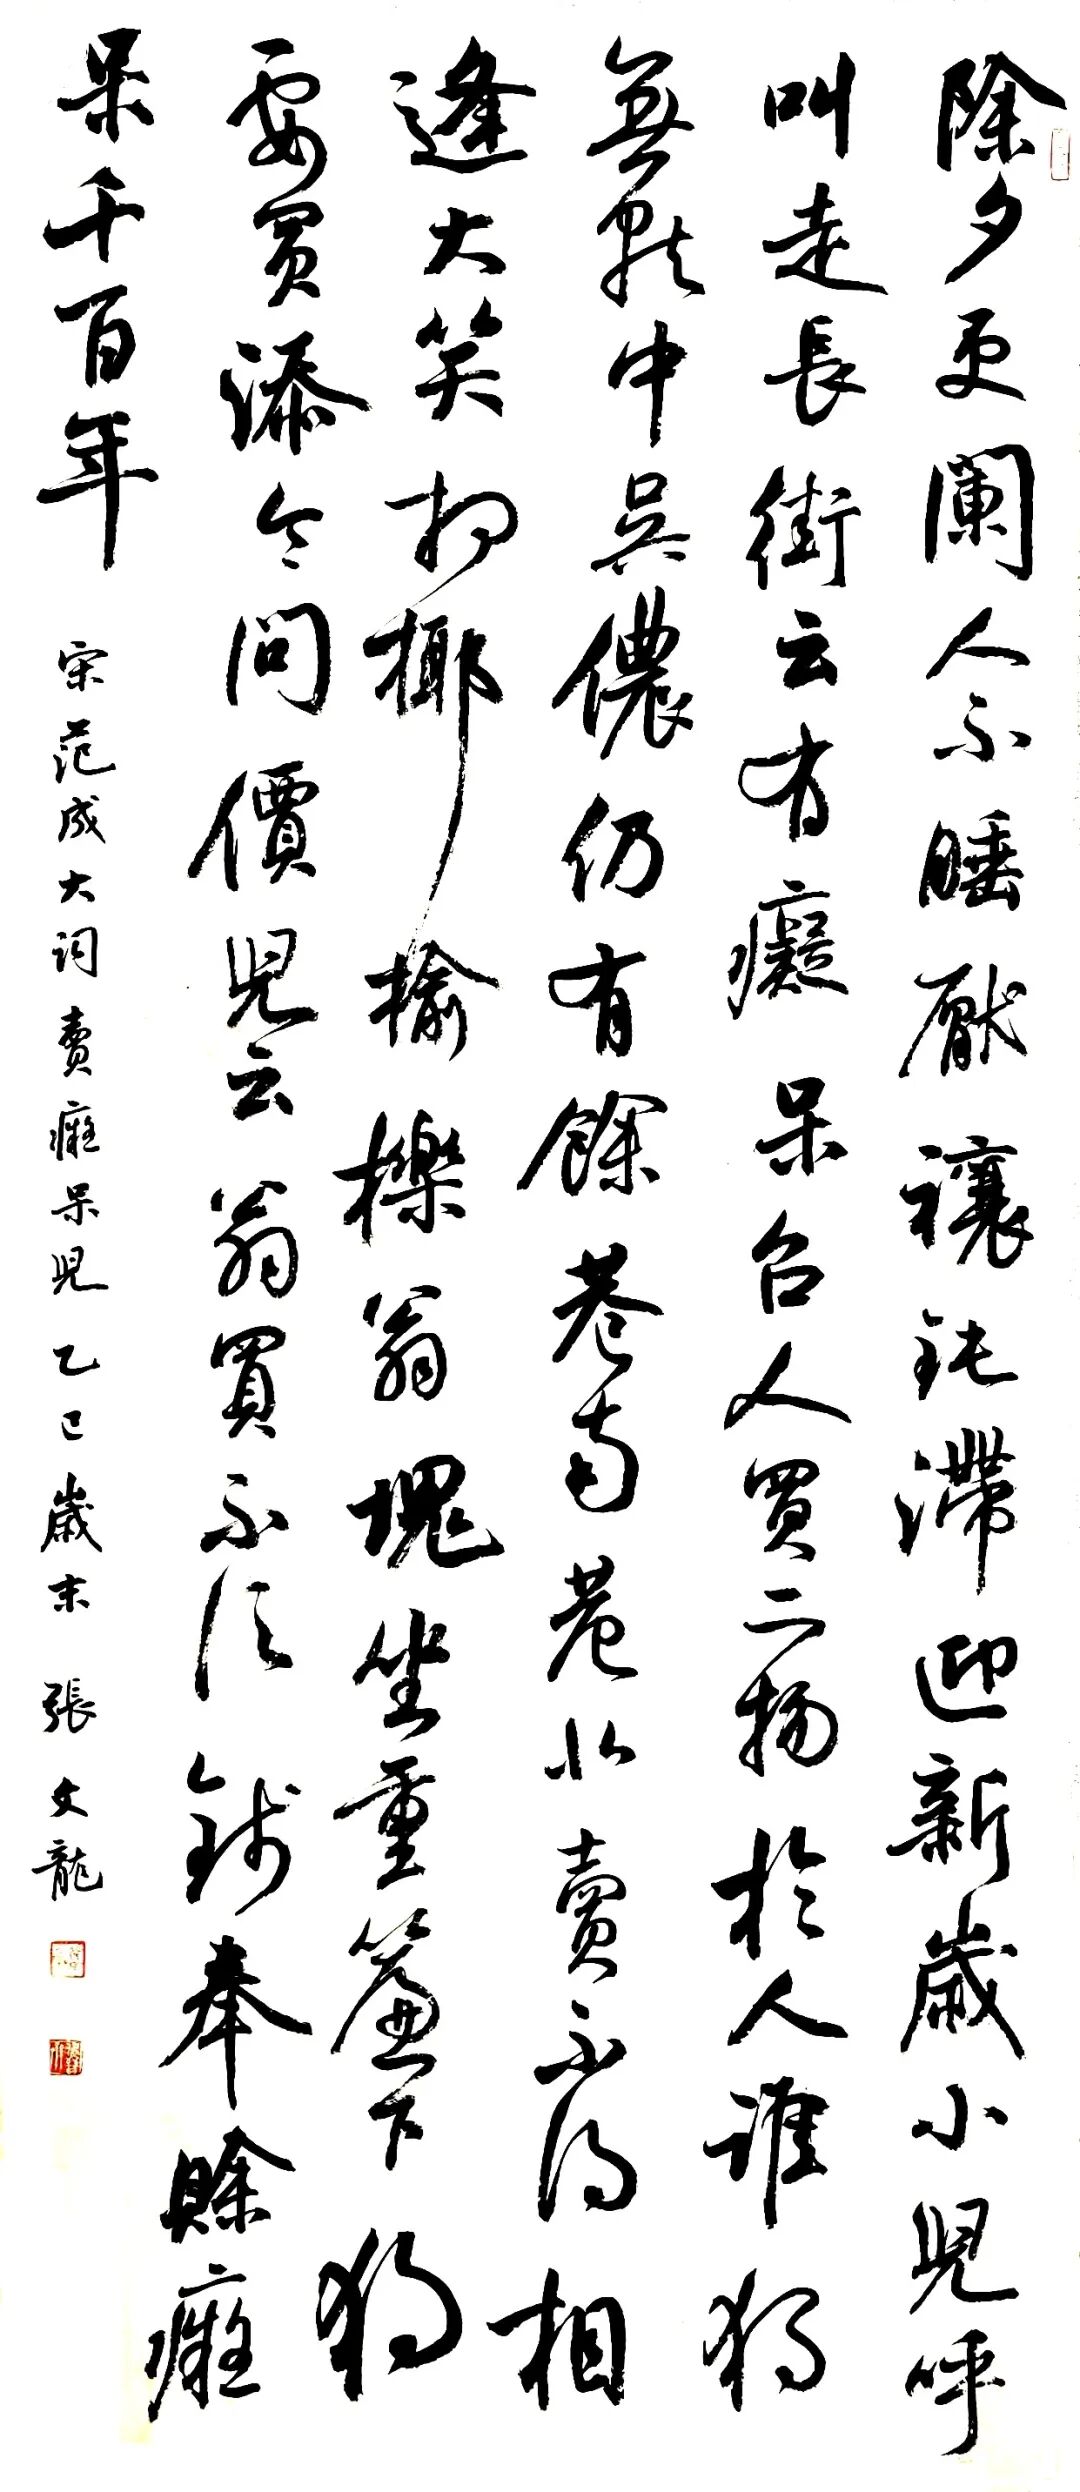 除夕更闌人不睡厭禳鈍滯迎新歲小兒呼
叫走長街云有癡呆召人買二物於人誰獨
無就中吳儂仍有餘巷南巷北賣不得相
逢大笑相揶揄櫟翁塊坐重簾下獨
要買添令問價兒云翁買不須錢奉賒癡
呆千百年
宋范成大詞賣癡呆兒 乙巳歲末 張文龍